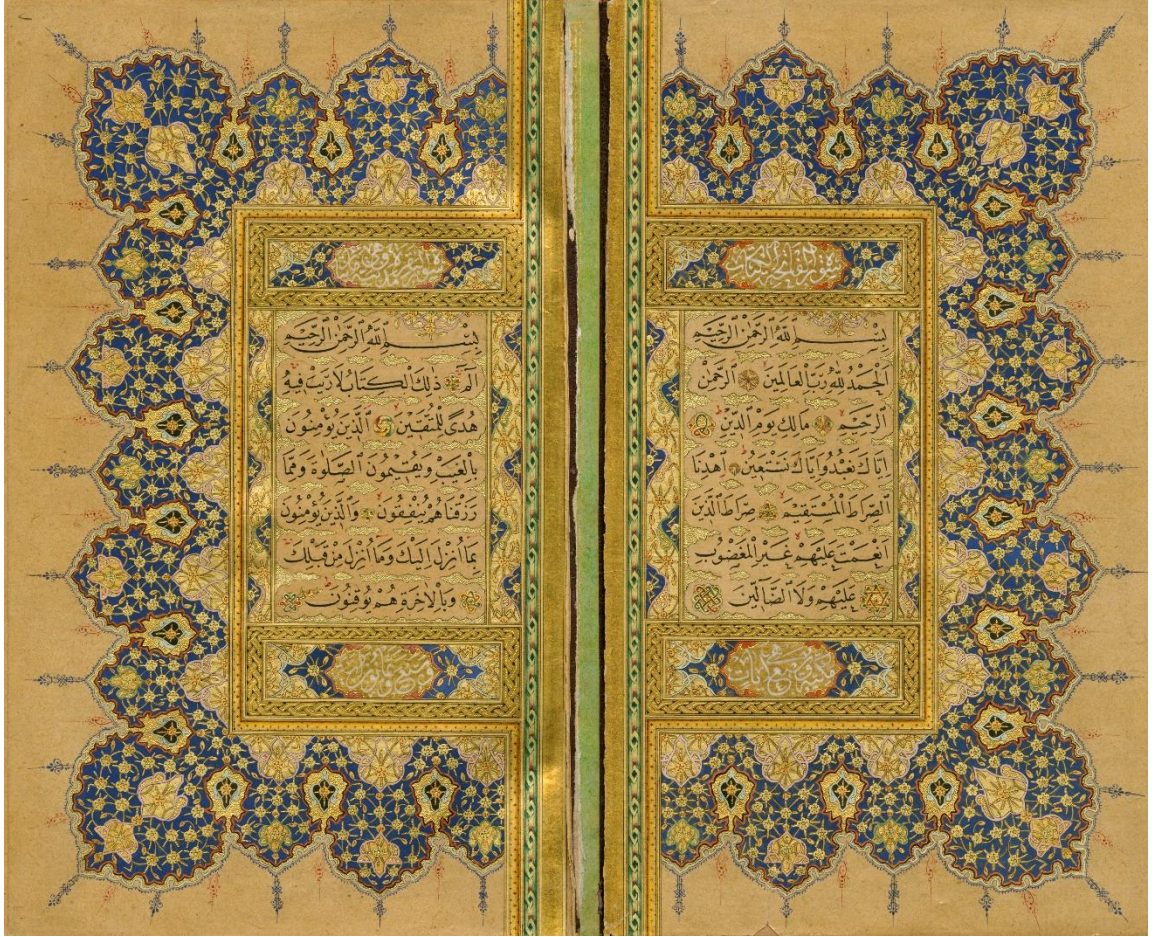 سورة الفاتحة الكتاب
بِسْمِ اللهِ الرَّحْمٰنِ الرَّحِيمِ
اَلْحَمْدُ لِلّٰهِ رَبِّ الْعَالَمِينَ اَلرَّحْمٰنِ
الرَّحِيمِ مَالِكِ يَوْمِ الدِّينِ
اِيَّاكَ نَعْبُدُ وَاِيَّاكَ نَسْتَعِينُ اِهْدِنَا
الصِّرَاطَ الْمُسْتَقِيمَ صِرَاطَ الَّذِينَ
اَنْعَمْتَ عَلَيْهِمْ غَيْرِ الْمَغْضُوبِ
عَلَيْهِمْ وَلَا الضَّالِّينَ
سورة البقرة
بِسْمِ اللهِ الرَّحْمٰنِ الرَّحِيمِ
الٓمٓ ذٰلِكَ الْكِتَابُ لَا رَيْبَ فِيهِ
هُدًى لِلْمُتَّقِينَ اَلَّذِينَ يُؤْمِنُونَ
بِالْغَيْبِ وَيُقِيمُونَ الصَّلٰوةَ وَمِمَّا
رَزَقْنَاهُمْ يُنْفِقُونَ وَالَّذِينَ يُؤْمِنُونَ
بِمَا اُنْزِلَ اِلَيْكَ وَمَا اُنْزِلَ مِنْ قَبْلِكَ
وَبِالْاٰخِرَةِ هُمْ يُوقِنُونَ